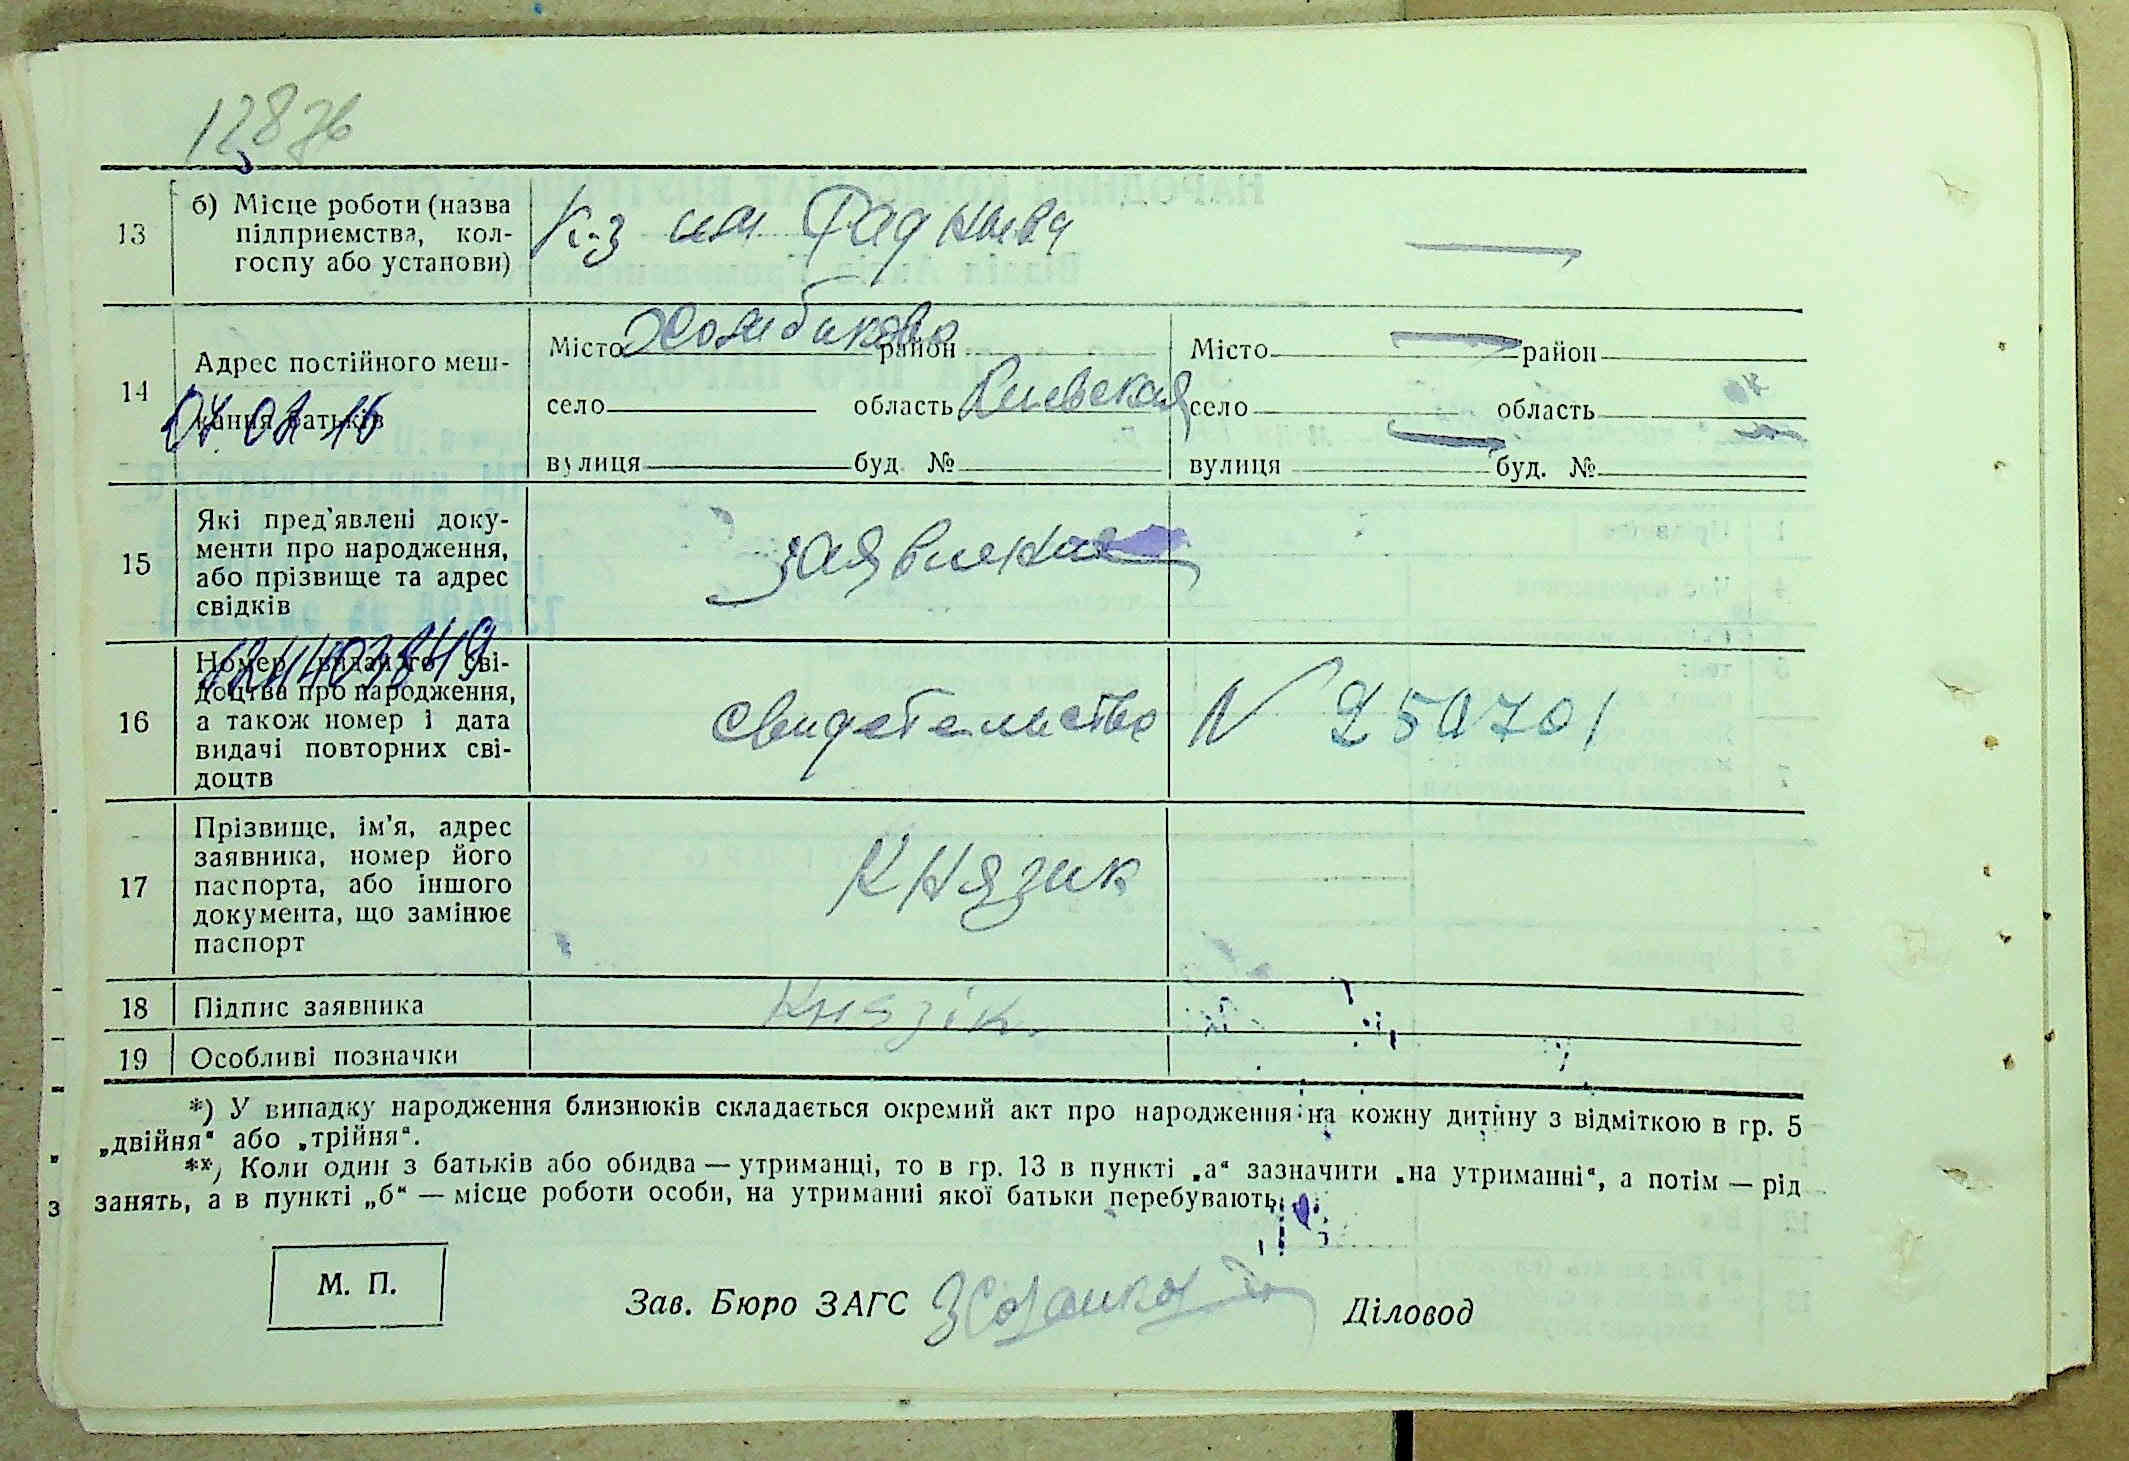 128
13 б) Місце роботи (назва підприємства, колгоспу або установи)
К-з им
14 Адрес постійного мешкання батьків
Місто район
село область Киевская
вулиця буд №
Місто район
село область
вулиця буд. №
07.02.15
15 Які пред'явлені документи про народження, або прізвище та адрес свідків
заявление
16 Номер виданого свідоцтва про народження, а також номер і дата видачі повторних свідоцтв
свидетельство N
17 Прізвище, ім'я, адрес заявника, номер його паспорта, або іншого документа, що замінює паспорт
Князик
18 Підпис заявника
Князік.
19 Особливі позначки
*) У випадку народження близнюків складається окремий акт про народження на кожну дитину з відміткою в гр. 5
„двійня“ або „трійня“.
**) Коли один з батьків або обидва — утриманці, то в гр. 13 в пункті „а“ зазначити „на утриманні“, а потім — рід
занять, а в пункті „б“ — місце роботи особи, на утриманні якої батьки перебувають.
М. П.
Зав. Бюро ЗАГС
Діловод